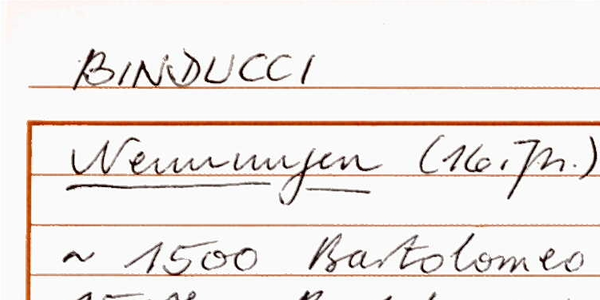 BINDUCCI
Nennungen (16. Jh.)
~ 1500 Bartolomeo